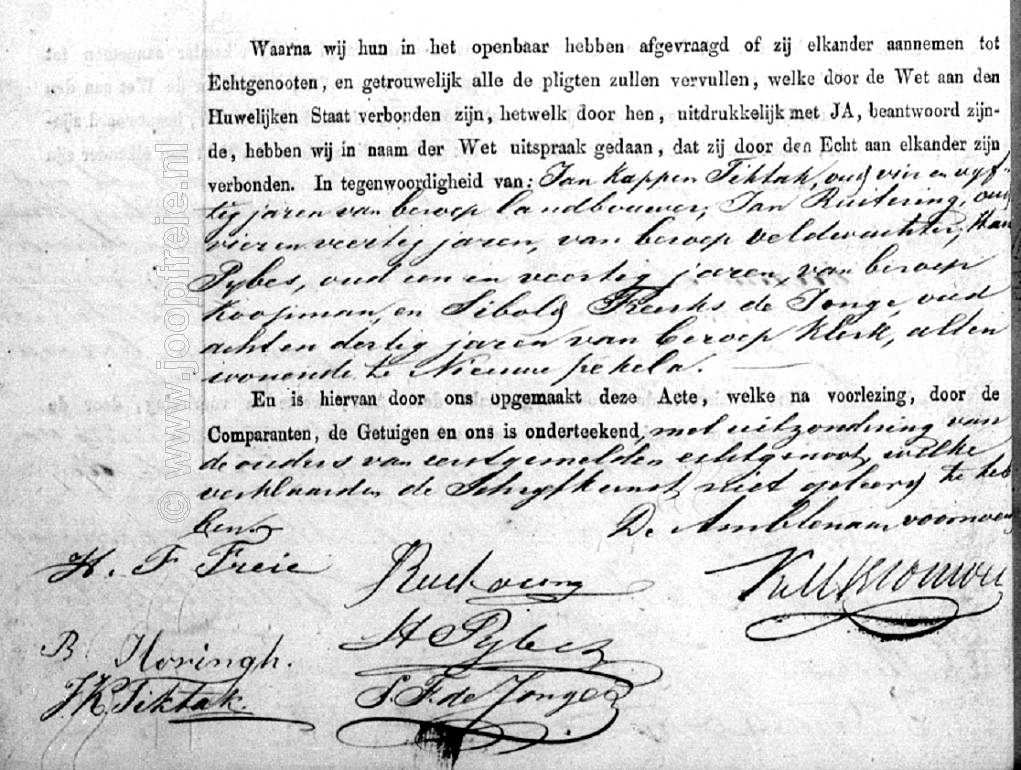 Waarna wij hun in het openbaar hebben afgevraagd of zij elkander aannemen tot
Echtgenooten, en getrouwelijk alle de pligten zullen vervullen, welke door de Wet aan den
Huwelijken Staat verbonden zijn, hetwelk door hen, uitdrukkelijk met JA, beantwoord zijn-
de, hebben wij in naam der Wet uitspraak gedaan, dat zij door den Echt aan elkander zijn
verbonden. In tegenwoordigheid van: Jan Kappen Tiktak, oud vier en vyf-
tig jaren van beroep landbouwer, Jan Ruitering, oud
vier en veertig jaren, van beroep veldwachter,
Pybes, oud een en veertig jaren, van beroep
Koopman, en Sibold Freerks de Jonge, oud
acht en dertig jaren van beroep Klerk, allen
wonende te Nieuwe pekela.
En is hiervan door ons opgemaakt deze Acte, welke na voorlezing, door de
Comparanten, de Getuigen en ons is onderteekend, met uitzondering van
de ouders van eerstgemelden echtgenoot, welke
verklaarden de Schryfkunst niet geleerd te heb
ben.
De Ambtenaar voornoemd
H. F Freie
B Horingh.
J K Tiktak.
H Pybes
S. F. de Jonge
© www.joopfreie.nl